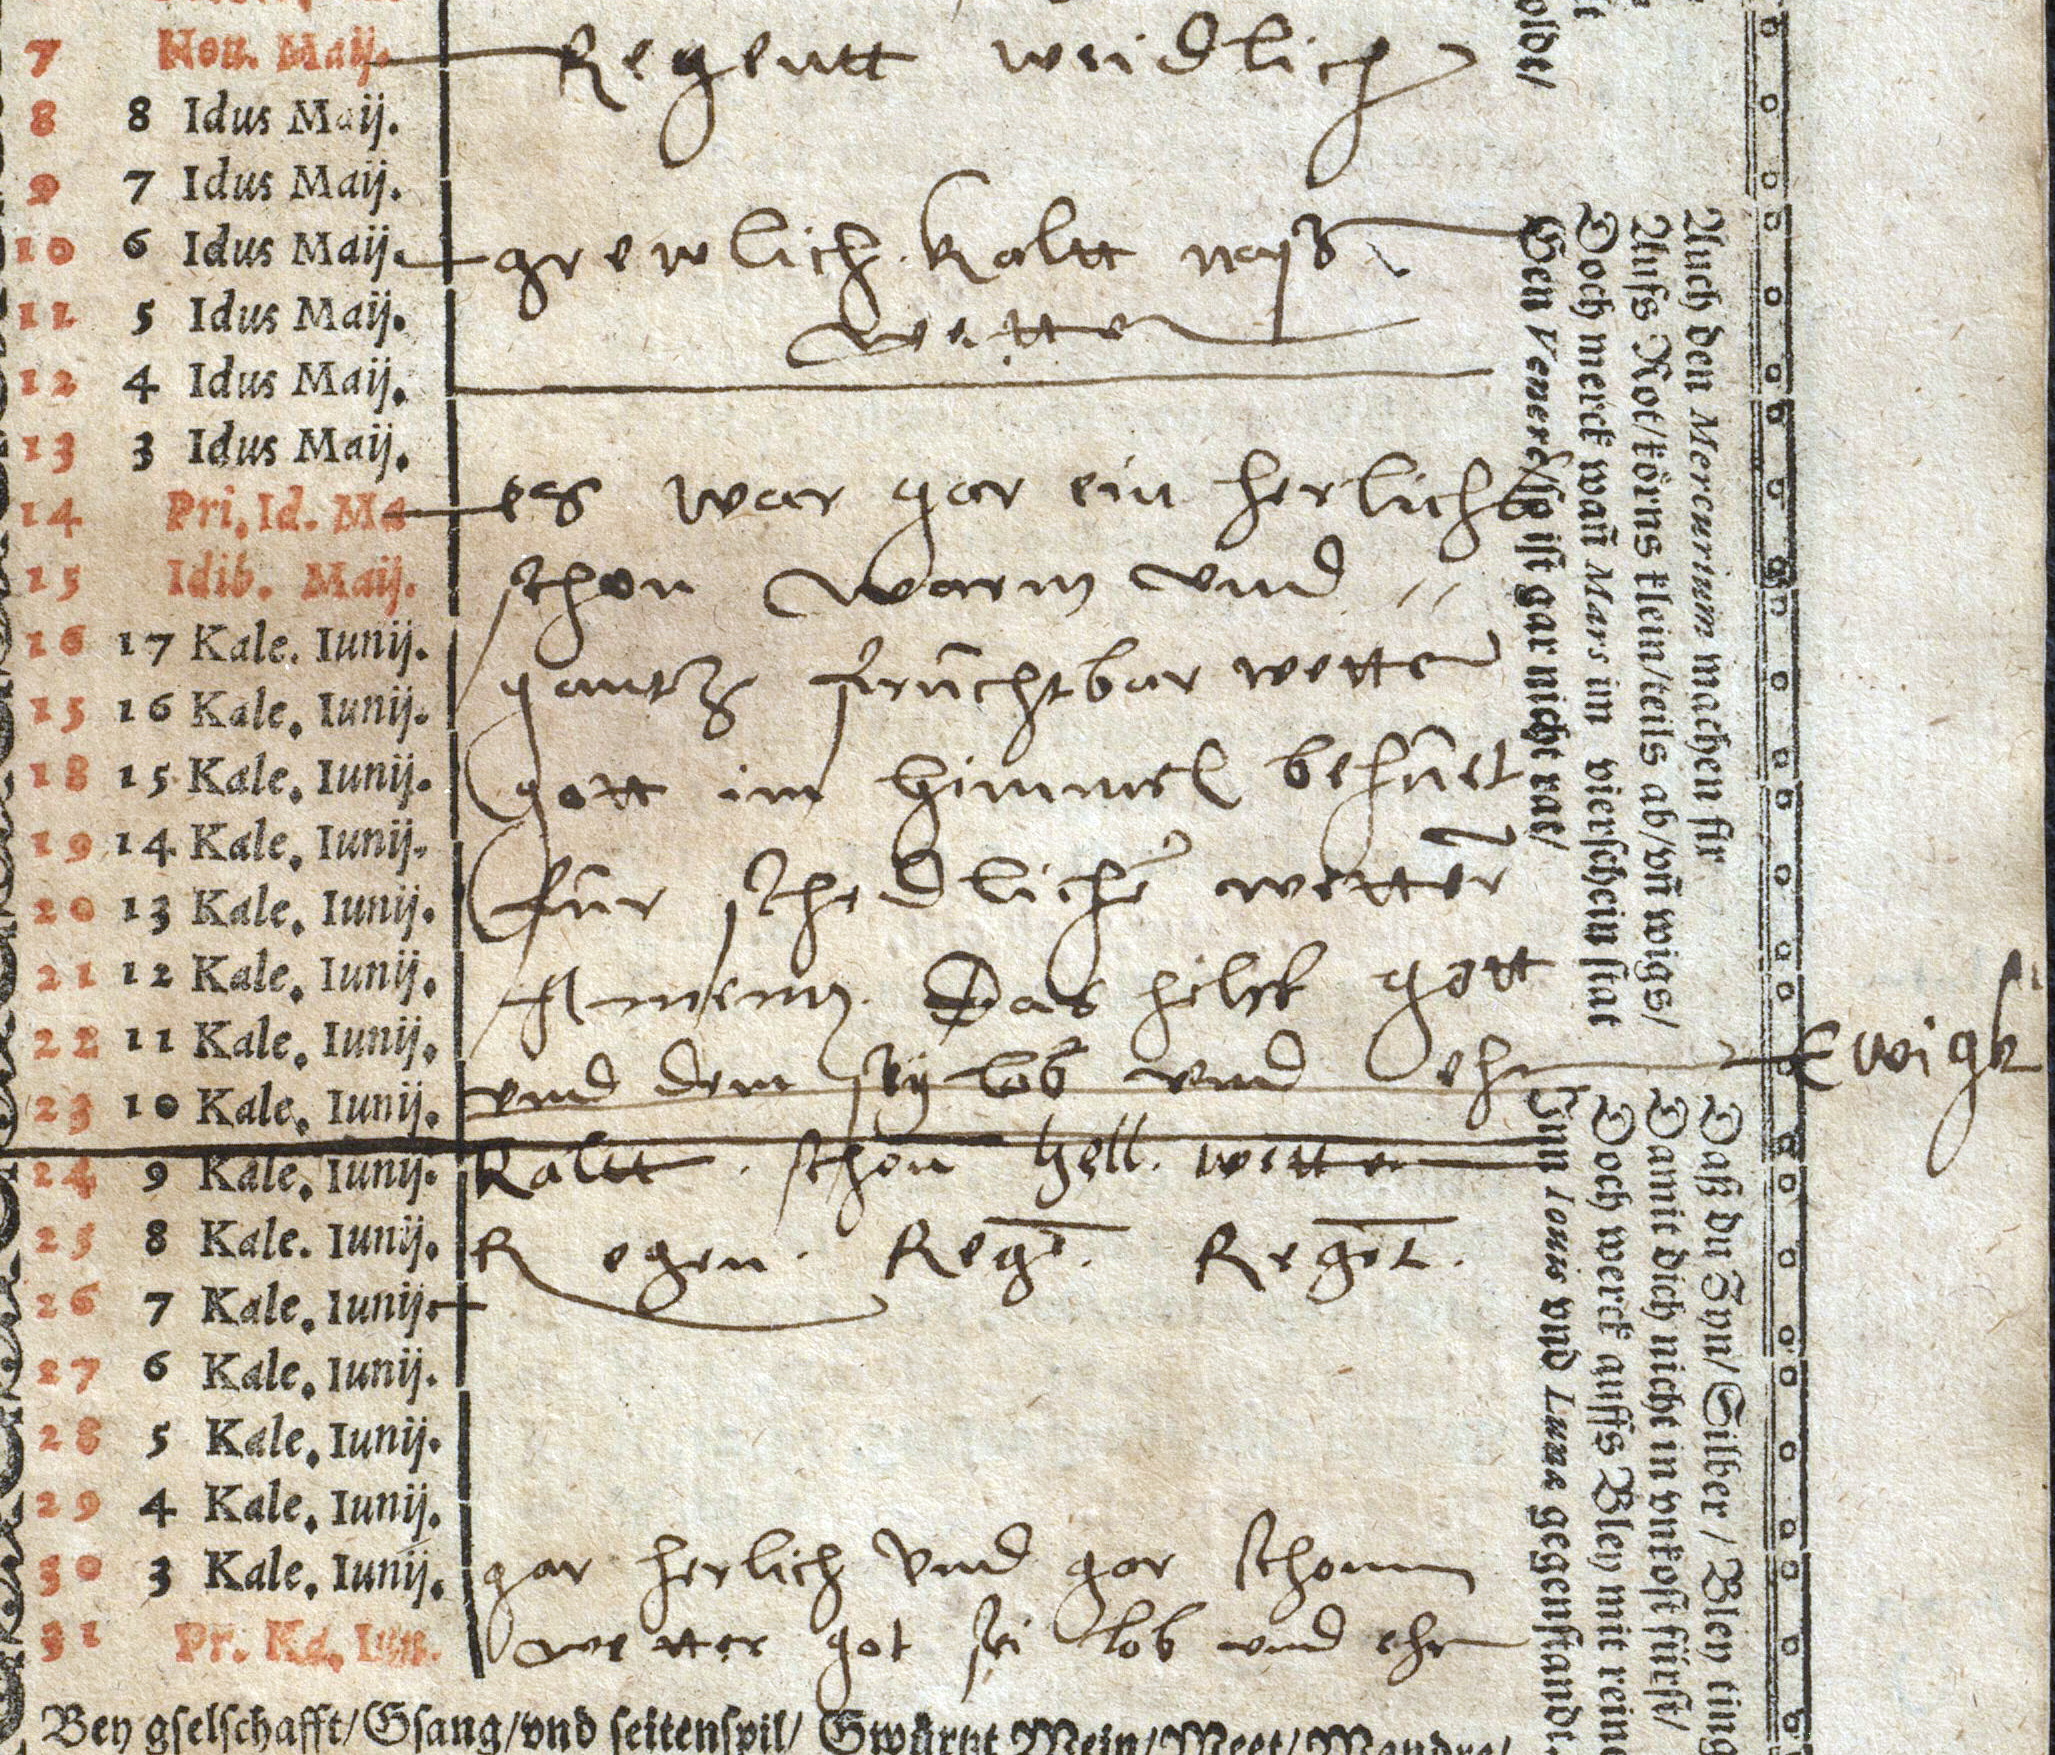 7 Non. Maij. Regentt weidlich
8 8 Idus Maij.
9 7 Idus Maij.
10 6 Idus Maij. grewlich kaltt nass
11 5 Idus Maij. wetter
12 4 Idus Maij.
13 3 Idus Maij.
14 Pri. Id. Ma es war gar ein herlich
15 Idib. Maij. schon warm vnd
16 17 Kale. Iunij. gantz fruchtbar wetter
15 16 Kale. Iunij.
18 15 Kale. Iunij. gott im himmel behuet
19 14 Kale. Iunij.
20 13 Kale. Iunij. fur schedlichē wetter
21 12 Kale. Iunij. Amenn. Das helff gott
22 11 Kale. Iunij.
23 10 Kale. Iunij. vnd dem sey lob vnd ehr Ewigk
24 9 Kale. Iunij. Kaltt. schon hell. wetter
25 8 Kale. Iunij. Regen. Regē. Regēt.
26 7 Kale. Iunij.
27 6 Kale. Iunij.
28 5 Kale. Iunij.
29 4 Kale. Iunij.
30 3 Kale. Iunij. gar herlich vnd gar schonn
31 Pr. Ka. Iun. wetter got sei lob vnd ehr
Bey gselschafft/Gsang/vnd seitenspil/ Gwürtzt Wein/Meet/
olde/
Auch den Mercurium machen fir
Auffs Rot/körns klein/teils ab/vñ wigs/
Doch merck wañ Mars im vierschein stat
Gen Venere/so ist gar nicht rat/
Daß du Zyn/Silber/Bley ting
Damit dich nicht in vnkost fürst/
Doch werck auffs Bley mit rein
Sinn Iouis vnd Luna gegenstandt